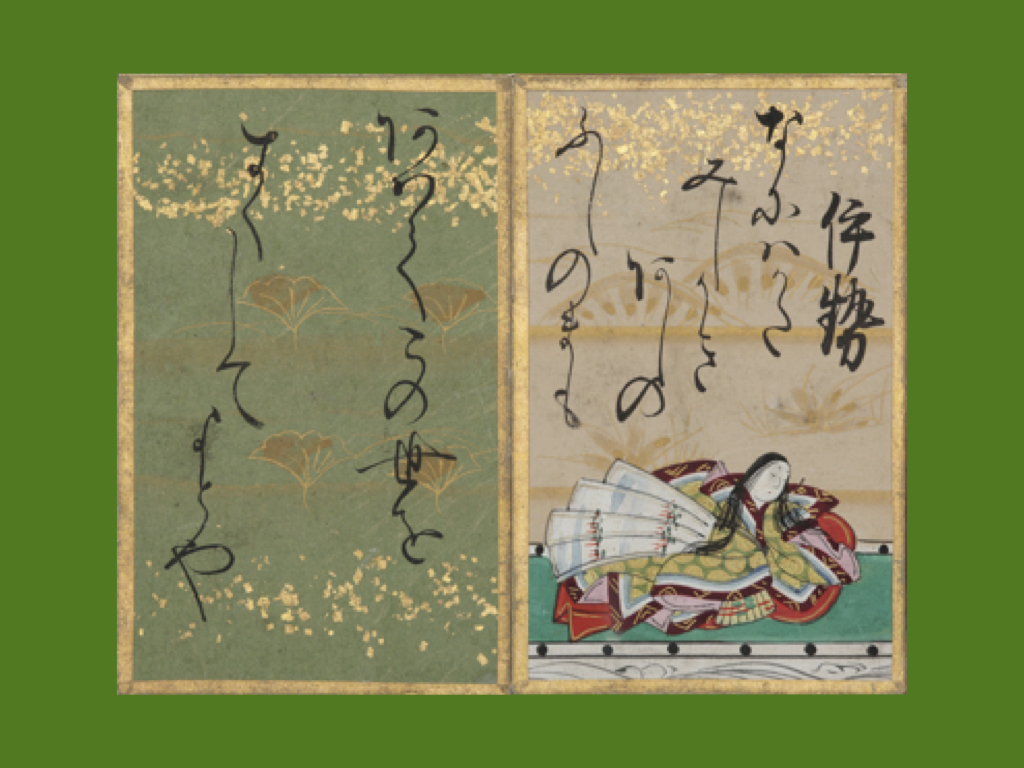 伊勢
なにハかた
みしかき
あしの
ふしのまも
あハてこの世を
すくしてよとや